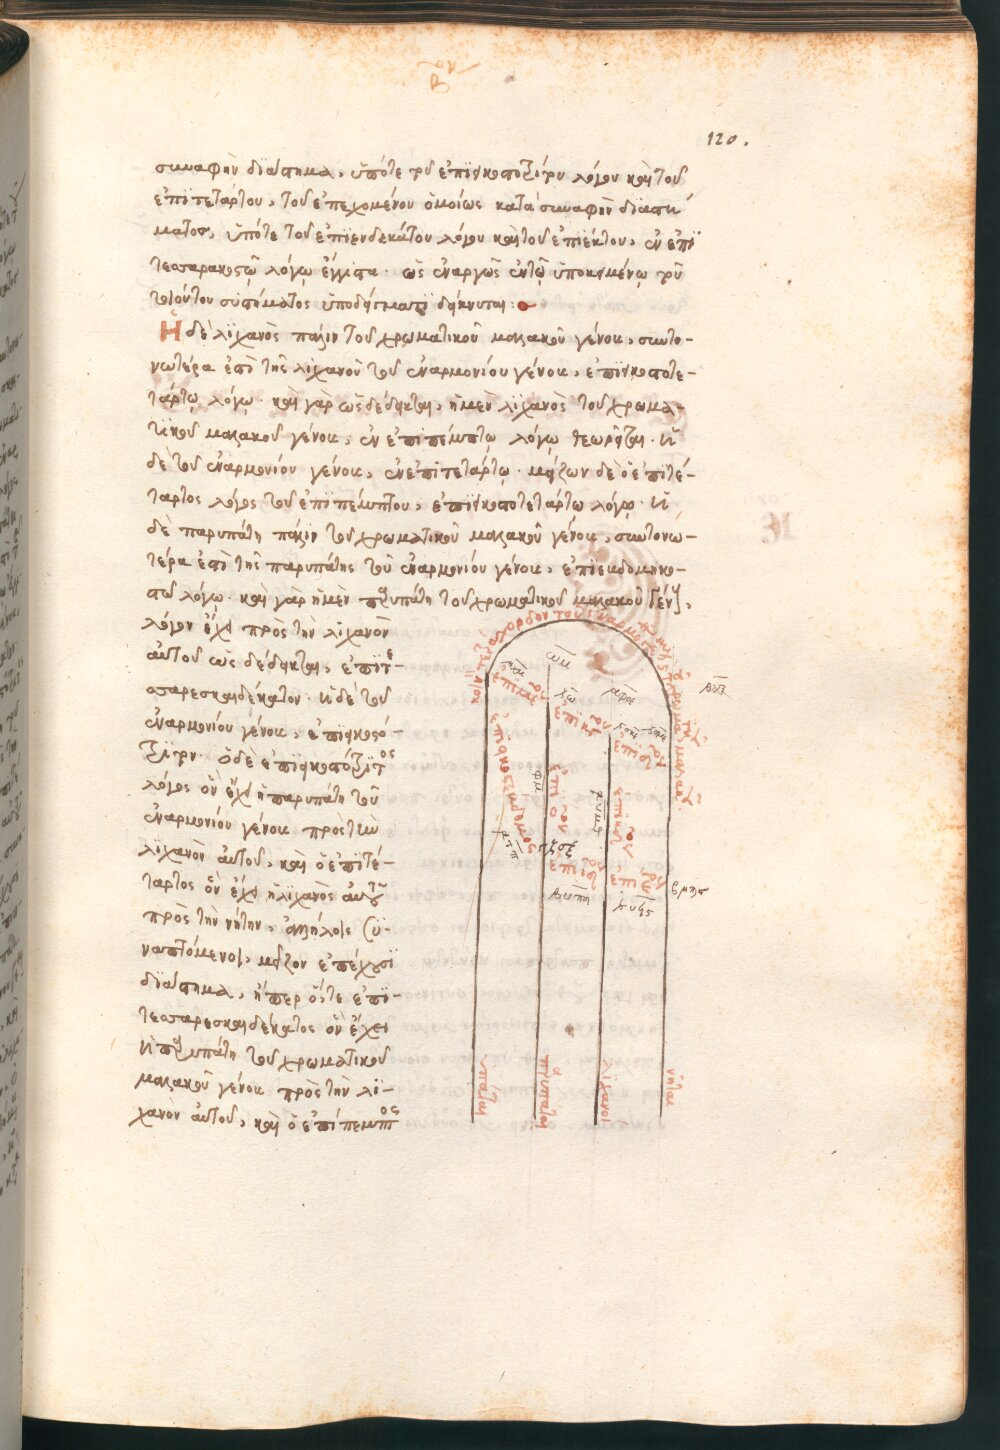 120.
συναφὴν διάστημα, ὑπό τε τοῦ ἐπιεικοστοτρίτου λόγου καὶ τοῦ
ἐπιτετάρτου, τοῦ ἐπεχομένου ὁμοίως κατὰ συναφὴν διαστή
ματος, ὑπό τε τοῦ ἐπιενδεκάτου λόγου καὶ τοῦ ἐπιέκτου, ἐν ἐπι
τεσσαρακοστῷ λόγῳ ἔγγιστα· ὡς ἐναργῶς ἐν τῷ ὑποκειμένῳ τοῦ
τοιούτου συστήματος ὑποδείγματι δείκνυται:
Ἡ δὲ λιχανὸς πάλιν τοῦ χρωματικοῦ μαλακοῦ γένους, συντο-
νωτέρα ἐστὶ τῆς λιχανοῦ τοῦ ἐναρμονίου γένους, ἐπιεικοστοτε-
τάρτῳ λόγῳ· καὶ γὰρ ὡς δέδεικται, ἡ μὲν λιχανὸς τοῦ χρωμα-
τικοῦ μαλακοῦ γένους, ἐν ἐπιπέμπτῳ λόγῳ θεωρεῖται· ἡ
δὲ τοῦ ἐναρμονίου γένους, ἐν ἐπιτετάρτῳ· μείζων δὲ ὁ ἐπιτέ-
ταρτος λόγος τοῦ ἐπιπέμπτου, ἐπιεικοστοτετάρτῳ λόγῳ· ἡ
δὲ παρυπάτη πάλιν τοῦ χρωματικοῦ μαλακοῦ γένους, συντονω-
τέρα ἐστὶ τῆς παρυπάτης τοῦ ἐναρμονίου γένους, ἐπιεβδομηκο-
στῷ λόγῳ· καὶ γὰρ ἡ μὲν παρυπάτη τοῦ χρωματικοῦ μαλακοῦ γένους,
λόγον ἔχει πρὸς τὴν λιχανὸν
αὐτοῦ ὡς δέδεικται, ἐπιτε-
σσαρεσκαιδέκατον· ἡ δὲ τοῦ
ἐναρμονίου γένους, ἐπιεικοσό-
τριτον· ὁ δὲ ἐπιεικοστότριτος
λόγος ὃν ἔχει ἡ παρυπάτη τοῦ
ἐναρμονίου γένους πρὸς τὴν
λιχανὸν αὐτοῦ, καὶ ὁ ἐπιτέ-
ταρτος ὃν ἔχει ἡ λιχανὸς αὐτοῦ
πρὸς τὴν νήτην, ἀλλήλοις συ-
ναπτόμενοι, μεῖζον ἐπέχουσι
διάστημα, ἤπερ ὅ τε ἐπι-
τεσσαρεσκαιδέκατος ὃν ἔχει
ἡ παρυπάτη τοῦ χρωματικοῦ
μαλακοῦ γένους πρὸς τὴν λι-
χανὸν αὐτοῦ, καὶ ὁ ἐπίπεμπτος
ὑπάται
παρυπάται
λιχανοί
νῆται